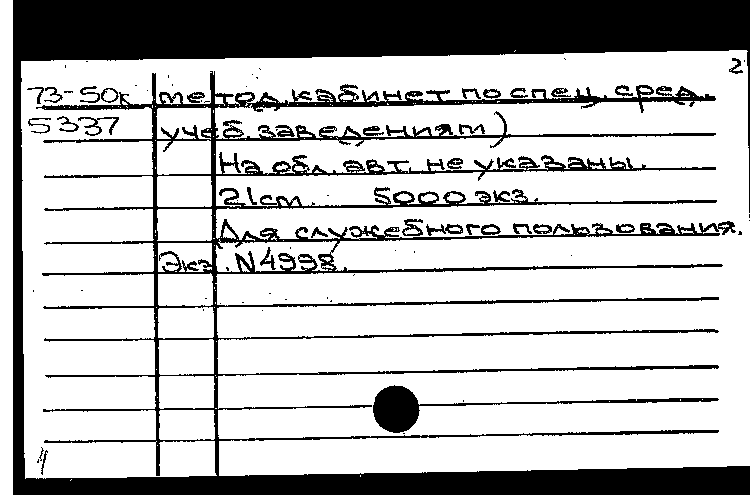 2
73-50к метод. кабинет по спец. сред.
5337 учеб. заведениям)
На обл. авт. не указаны.
21cm. 5000 экз.
Для служебного пользования.
Экз. N4998.
4